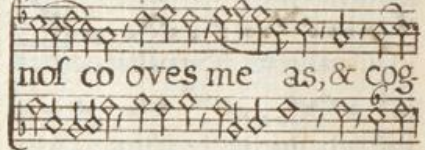 noſ co oves me as, & cog-
6